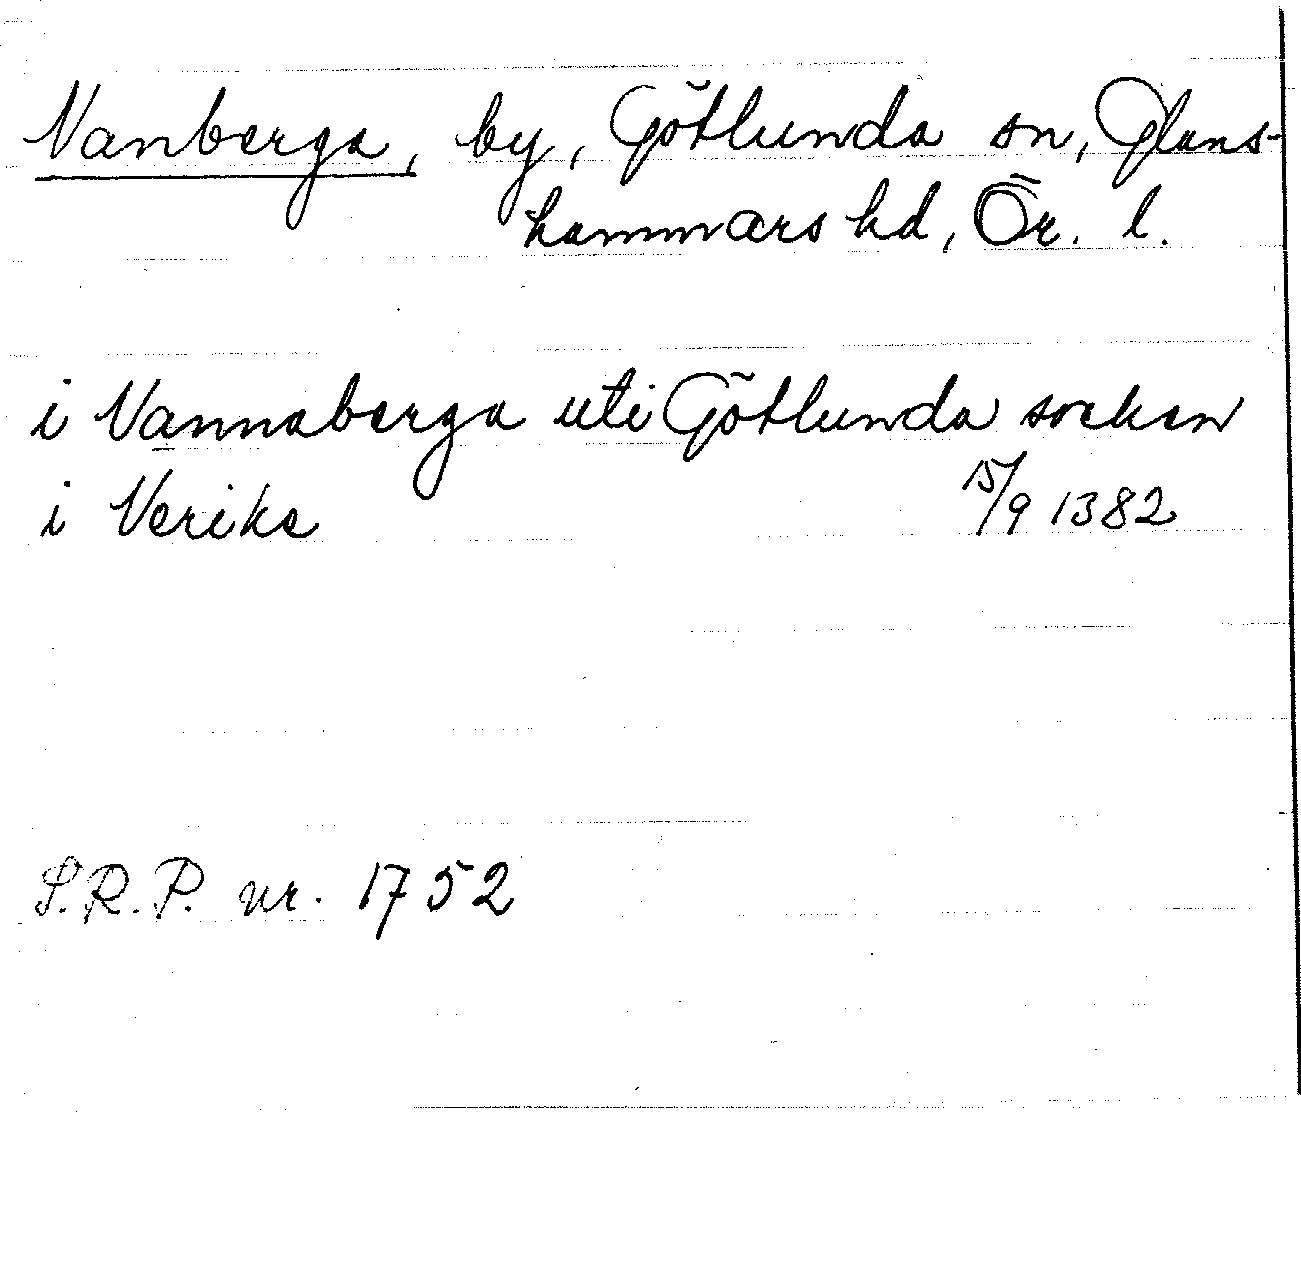 Vanberga, by, Götlunda sn, Glans-
hammars hd, Ör. l.
i Vannaberga uti Götlunda socken
i Verike 15/9 1382
S.R.P. nr. 1752